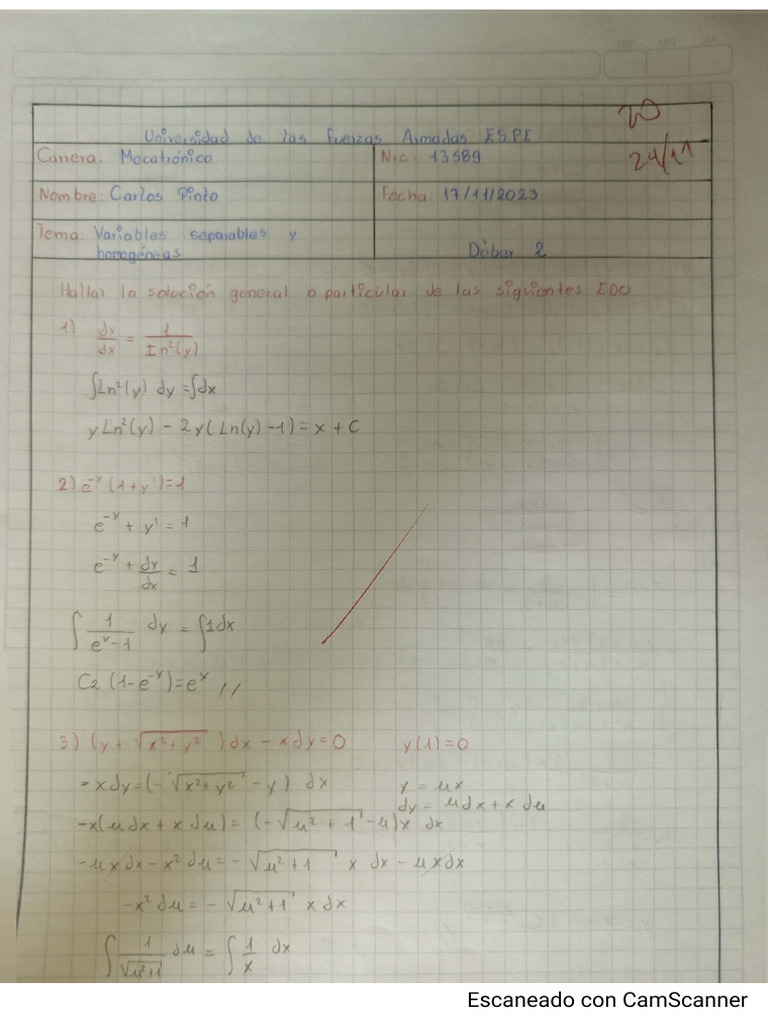 20
24/11
Universidad de las fuerzas Armadas ESPE
Carrera: Mecatrónica Nrc: 13589
Nombre: Carlos Pinto Fecha: 17/11/2023
Tema: Variables separables y
homogéneas Déber 2
Hallar la solución general o particular de las siguientes EDO
1) dy/dx = 1/Ln²(y)
∫Ln²(y) dy = ∫dx
yLn²(y) - 2y(Ln(y) - 1) = x + C
2) e⁻ʸ (1 + y') = 1
e⁻ʸ + y' = 1
e⁻ʸ + dy/dx = 1
∫ 1/(eʸ - 1) dy = ∫1dx
C2 (1 - e⁻ʸ) = eˣ //
3) (y + √(x² + y²)) dx - xdy = 0 y(1) = 0
- xdy = (-√(x² + y²) - y) dx y = ux
dy = udx + x du
-x(u dx + x du) = (-√(u² + 1) - u)x dx
-ux dx - x² du = -√(u² + 1) x dx - uxdx
-x² du = -√(u² + 1) x dx
∫ 1/√(u²+1) du = ∫ 1/x dx
Escaneado con CamScanner